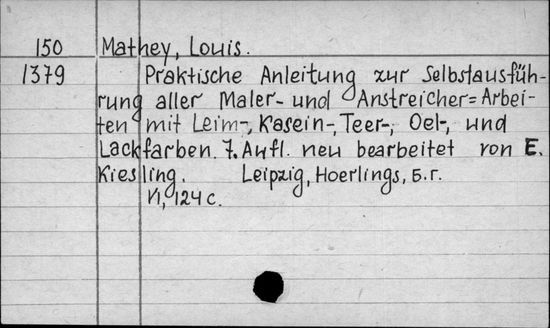 150 Mathey, Louis.
1379 Praktische Anleitung zur Selbstausfüh-
rung aller Maler- und Anstreicher=Arbei-
ten mit Leim-, Kasein-, Teer-, Oel-, und
Lackfarben. 7. Aufl. neu bearbeitet von E.
Kiesling. Leipzig, Hoerlings, б.г.
VI, 124 с.